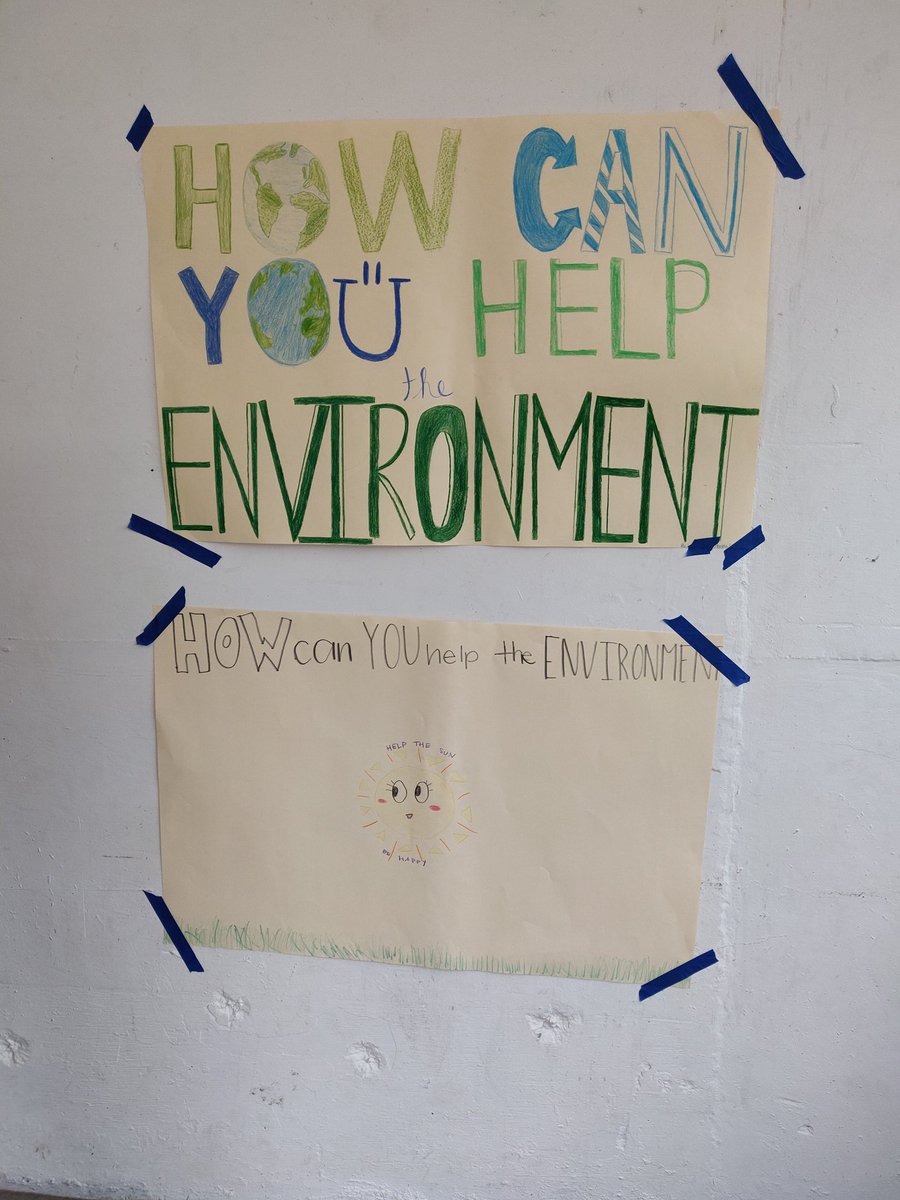 HOW CAN
YOU HELP
the
ENVIRONMENT
HOW can YOU help the ENVIRONMENT
HELP THE SUN
BE HAPPY